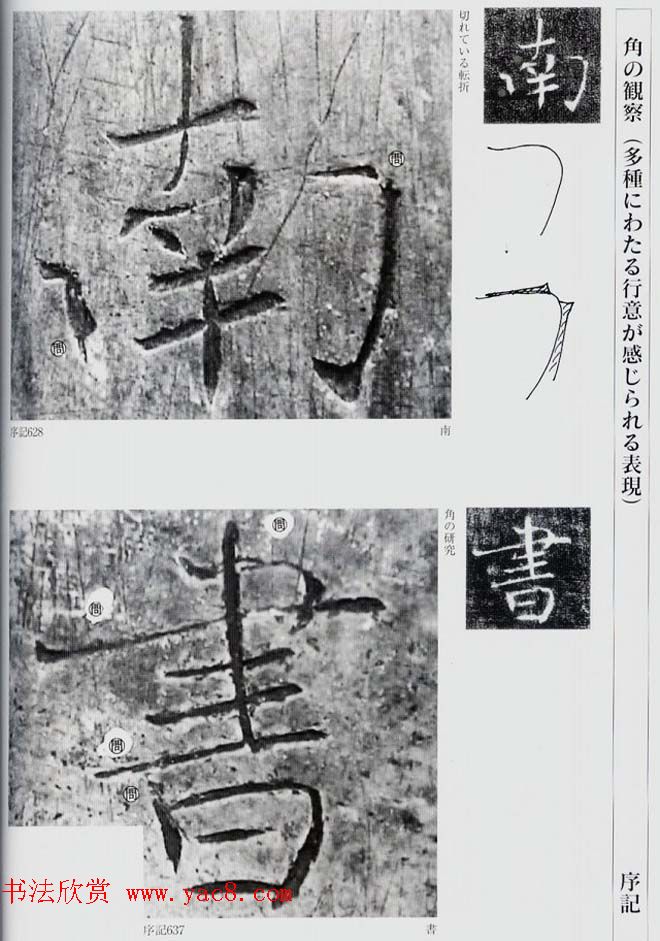 角の観察（多種にわたる行意が感じられる表現）
序記
南
切れている転折
南
問
問
序記628
南
書
角の研究
書
問
問
問
問
序記637
書
书法欣赏 www.yac8.com